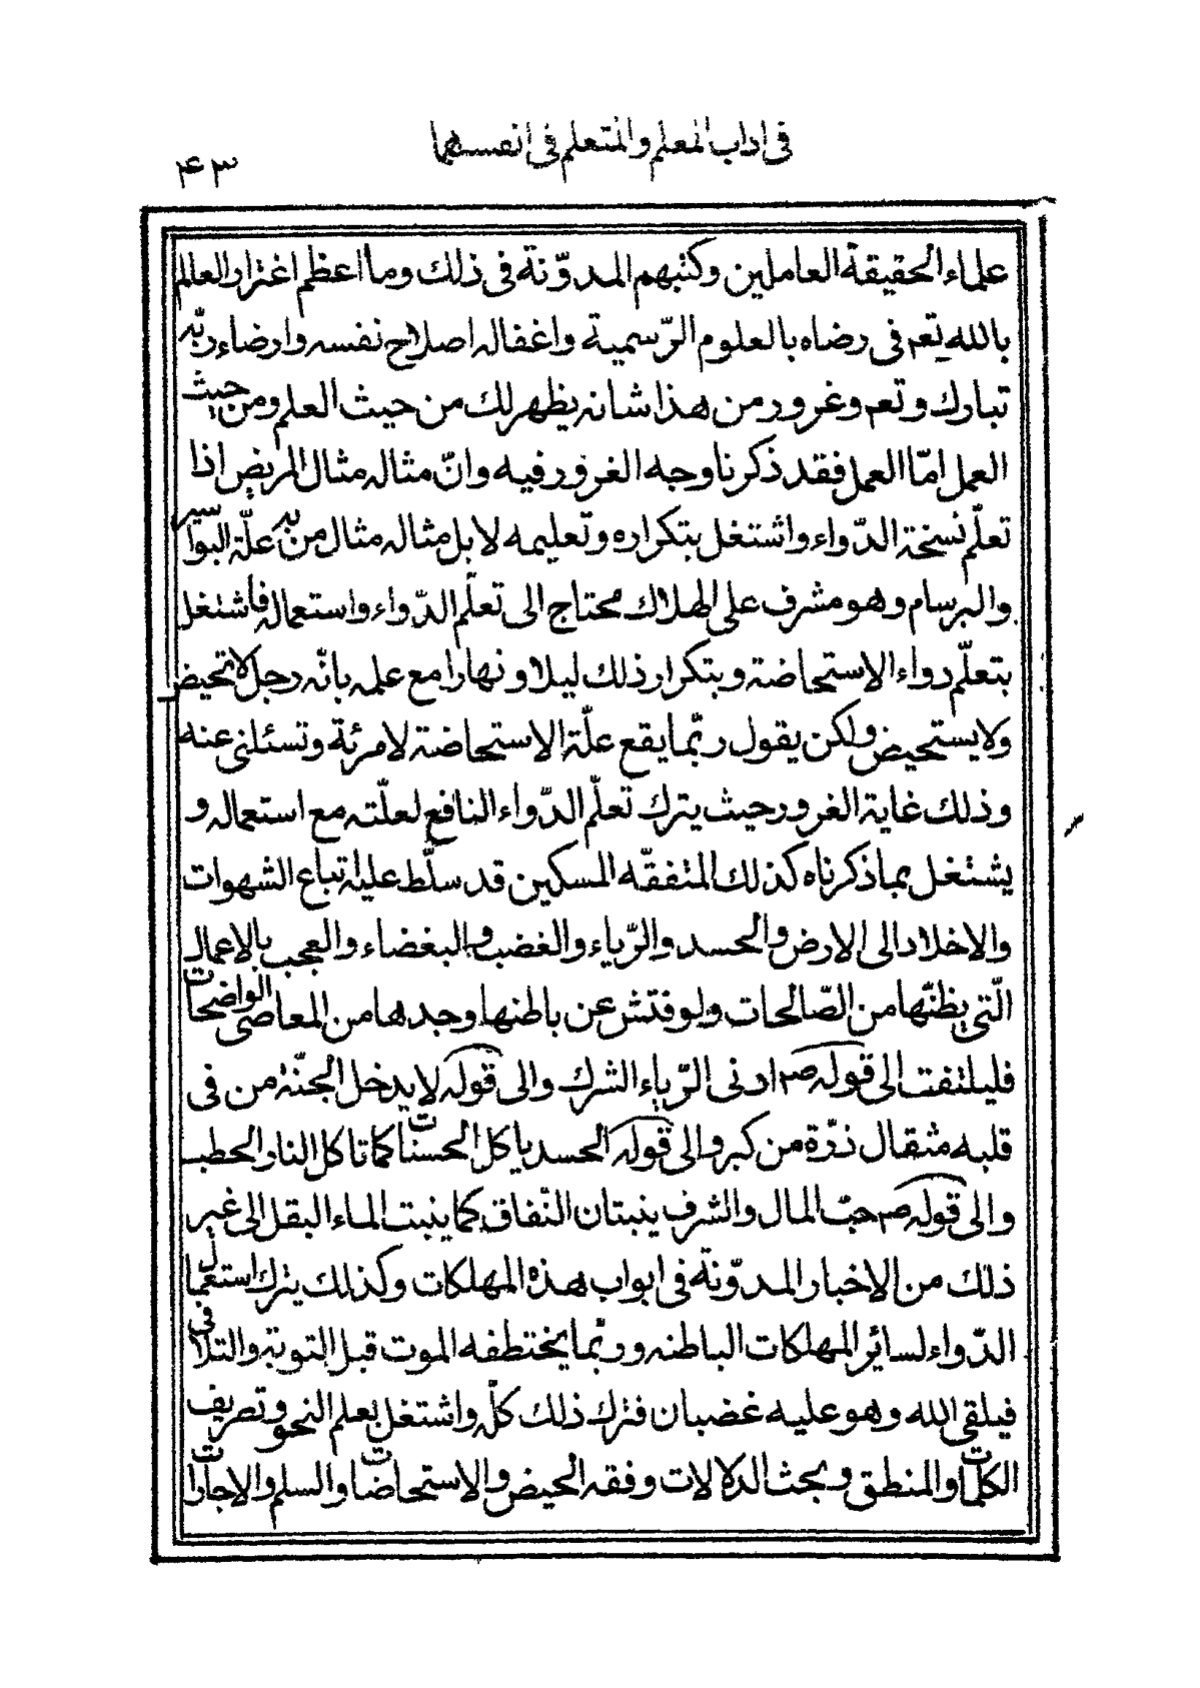 فى اداب المعلم والمتعلم فى انفسهما
٤٣
علماء الحقيقة العاملين وكتبهم المدوّنة فى ذلك وما اعظم اغترار العالم
بالله تعم فى رضاه بالعلوم الرّسمية واغفاله اصلاح نفسه وارضاء ربّه
تبارك وتعم وغرور من هذا شانه يظهر لك من حيث العلم ومن حيث
العمل امّا العمل فقد ذكرنا وجه الغرور فيه وانّ مثاله مثال المريض اذا
تعلّم نسخة الدّواء واشتغل بتكراره وتعليمه لا بل مثاله مثال من به علّة البواسير
والبرسام وهو مشرف على الهلاك محتاج الى تعلّم الدّواء واستعماله فاشتغل
بتعلّم دواء الاستحاضة وبتكرار ذلك ليلا ونهارا مع علمه بانّه رجل لا تحيض
ولا يستحيض ولكن يقول ربّما يقع علّة الاستحاضة لامرئة وتسئلنى عنه
وذلك غاية الغرور حيث يترك تعلّم الدّواء النافع لعلّته مع استعماله و
يشتغل بما ذكرناه كذلك المتفقّه المسكين قد سلّط عليه اتباع الشهوات
والاخلاد الى الارض والحسد والرّياء والغضب والبغضاء والعجب بالاعمال
الّتى يظنّها من الصّالحات ولو فتش عن باطنها وجدها من المعاصى الواضحات
فليلتفت الى قوله صم ادنى الرّياء الشرك والى قوله لا يدخل الجنّة من فى
قلبه مثقال ذرّة من كبر والى قوله الحسد ياكل الحسنات كما تاكل النار الحطب
والى قوله صم حبّ المال والشرف ينبتان النّفاق كما ينبت الماء البقل الى غير
ذلك من الاخبار المدوّنة فى ابواب هذه المهلكات وكذلك يترك استعمال
الدّواء لسائر المهلكات الباطنه وربّما يختطفه الموت قبل التوبة والتلافى
فيلقى الله وهو عليه غضبان فترك ذلك كلّه واشتغل بعلم النحو وتصريف
الكلمات والمنطق وبحث الدلالات وفقه الحيض والاستحاضات والسلم والاجارات